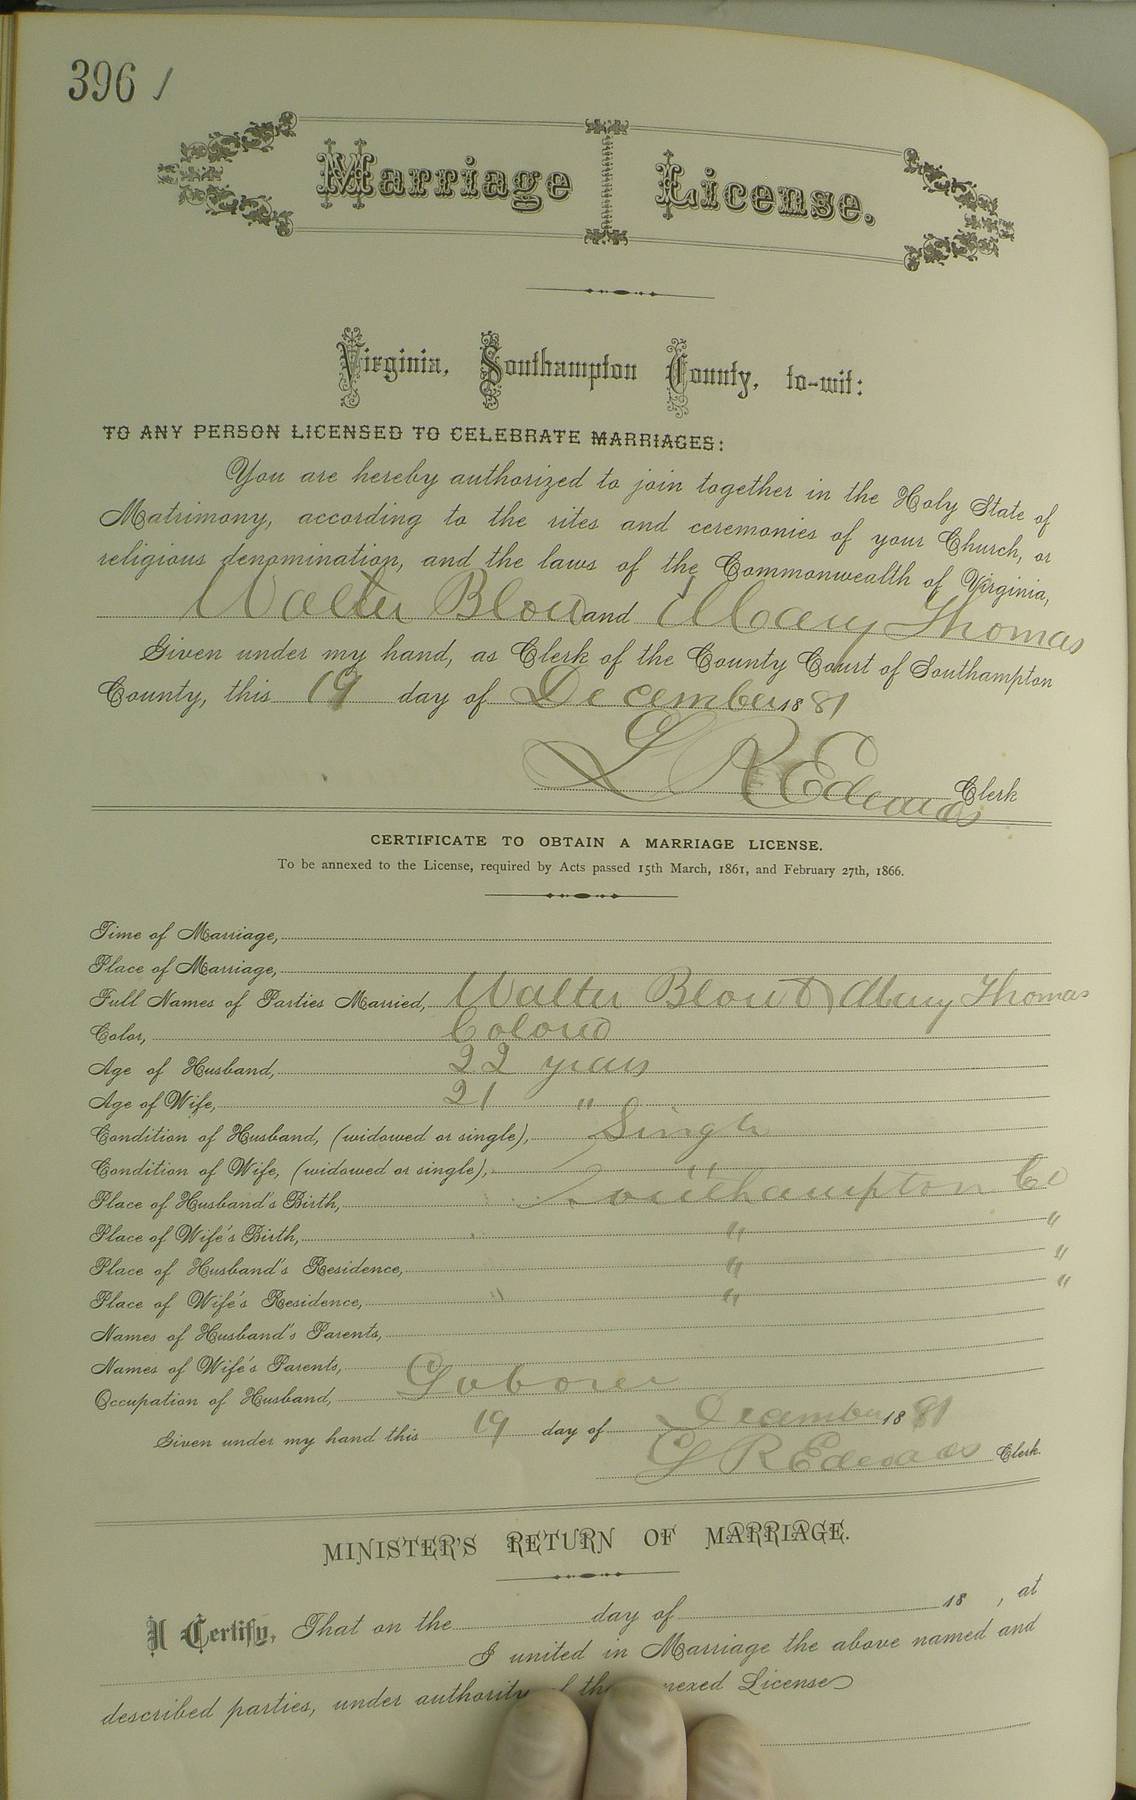 396 /
Marriage License.
Virginia, Southampton County, to-wit:
TO ANY PERSON LICENSED TO CELEBRATE MARRIAGES:
You are hereby authorized to join together in the Holy State of
Matrimony, according to the rites and ceremonies of your Church, or
religious denomination, and the laws of the Commonwealth of Virginia,
Walter Blow and Mary Thomas
Given under my hand, as Clerk of the County Court of Southampton
County, this 19 day of December 1881
L R Edwards Clerk
CERTIFICATE TO OBTAIN A MARRIAGE LICENSE.
To be annexed to the License, required by Acts passed 15th March, 1861, and February 27th, 1866.
Time of Marriage,
Place of Marriage,
Full Names of Parties Married, Walter Blow & Mary Thomas
Color, Colored
Age of Husband, 22 years
Age of Wife, 21 "
Condition of Husband, (widowed or single), Single
Condition of Wife, (widowed or single), "
Place of Husband's Birth, Southampton Co
Place of Wife's Birth, " "
Place of Husband's Residence, " "
Place of Wife's Residence, " "
Names of Husband's Parents,
Names of Wife's Parents,
Occupation of Husband, Laborer
Given under my hand this 19 day of December 1881
L R Edwards Clerk.
MINISTER'S RETURN OF MARRIAGE.
I Certify, That on the day of 18 , at
I united in Marriage the above named and
described parties, under authority of the annexed License